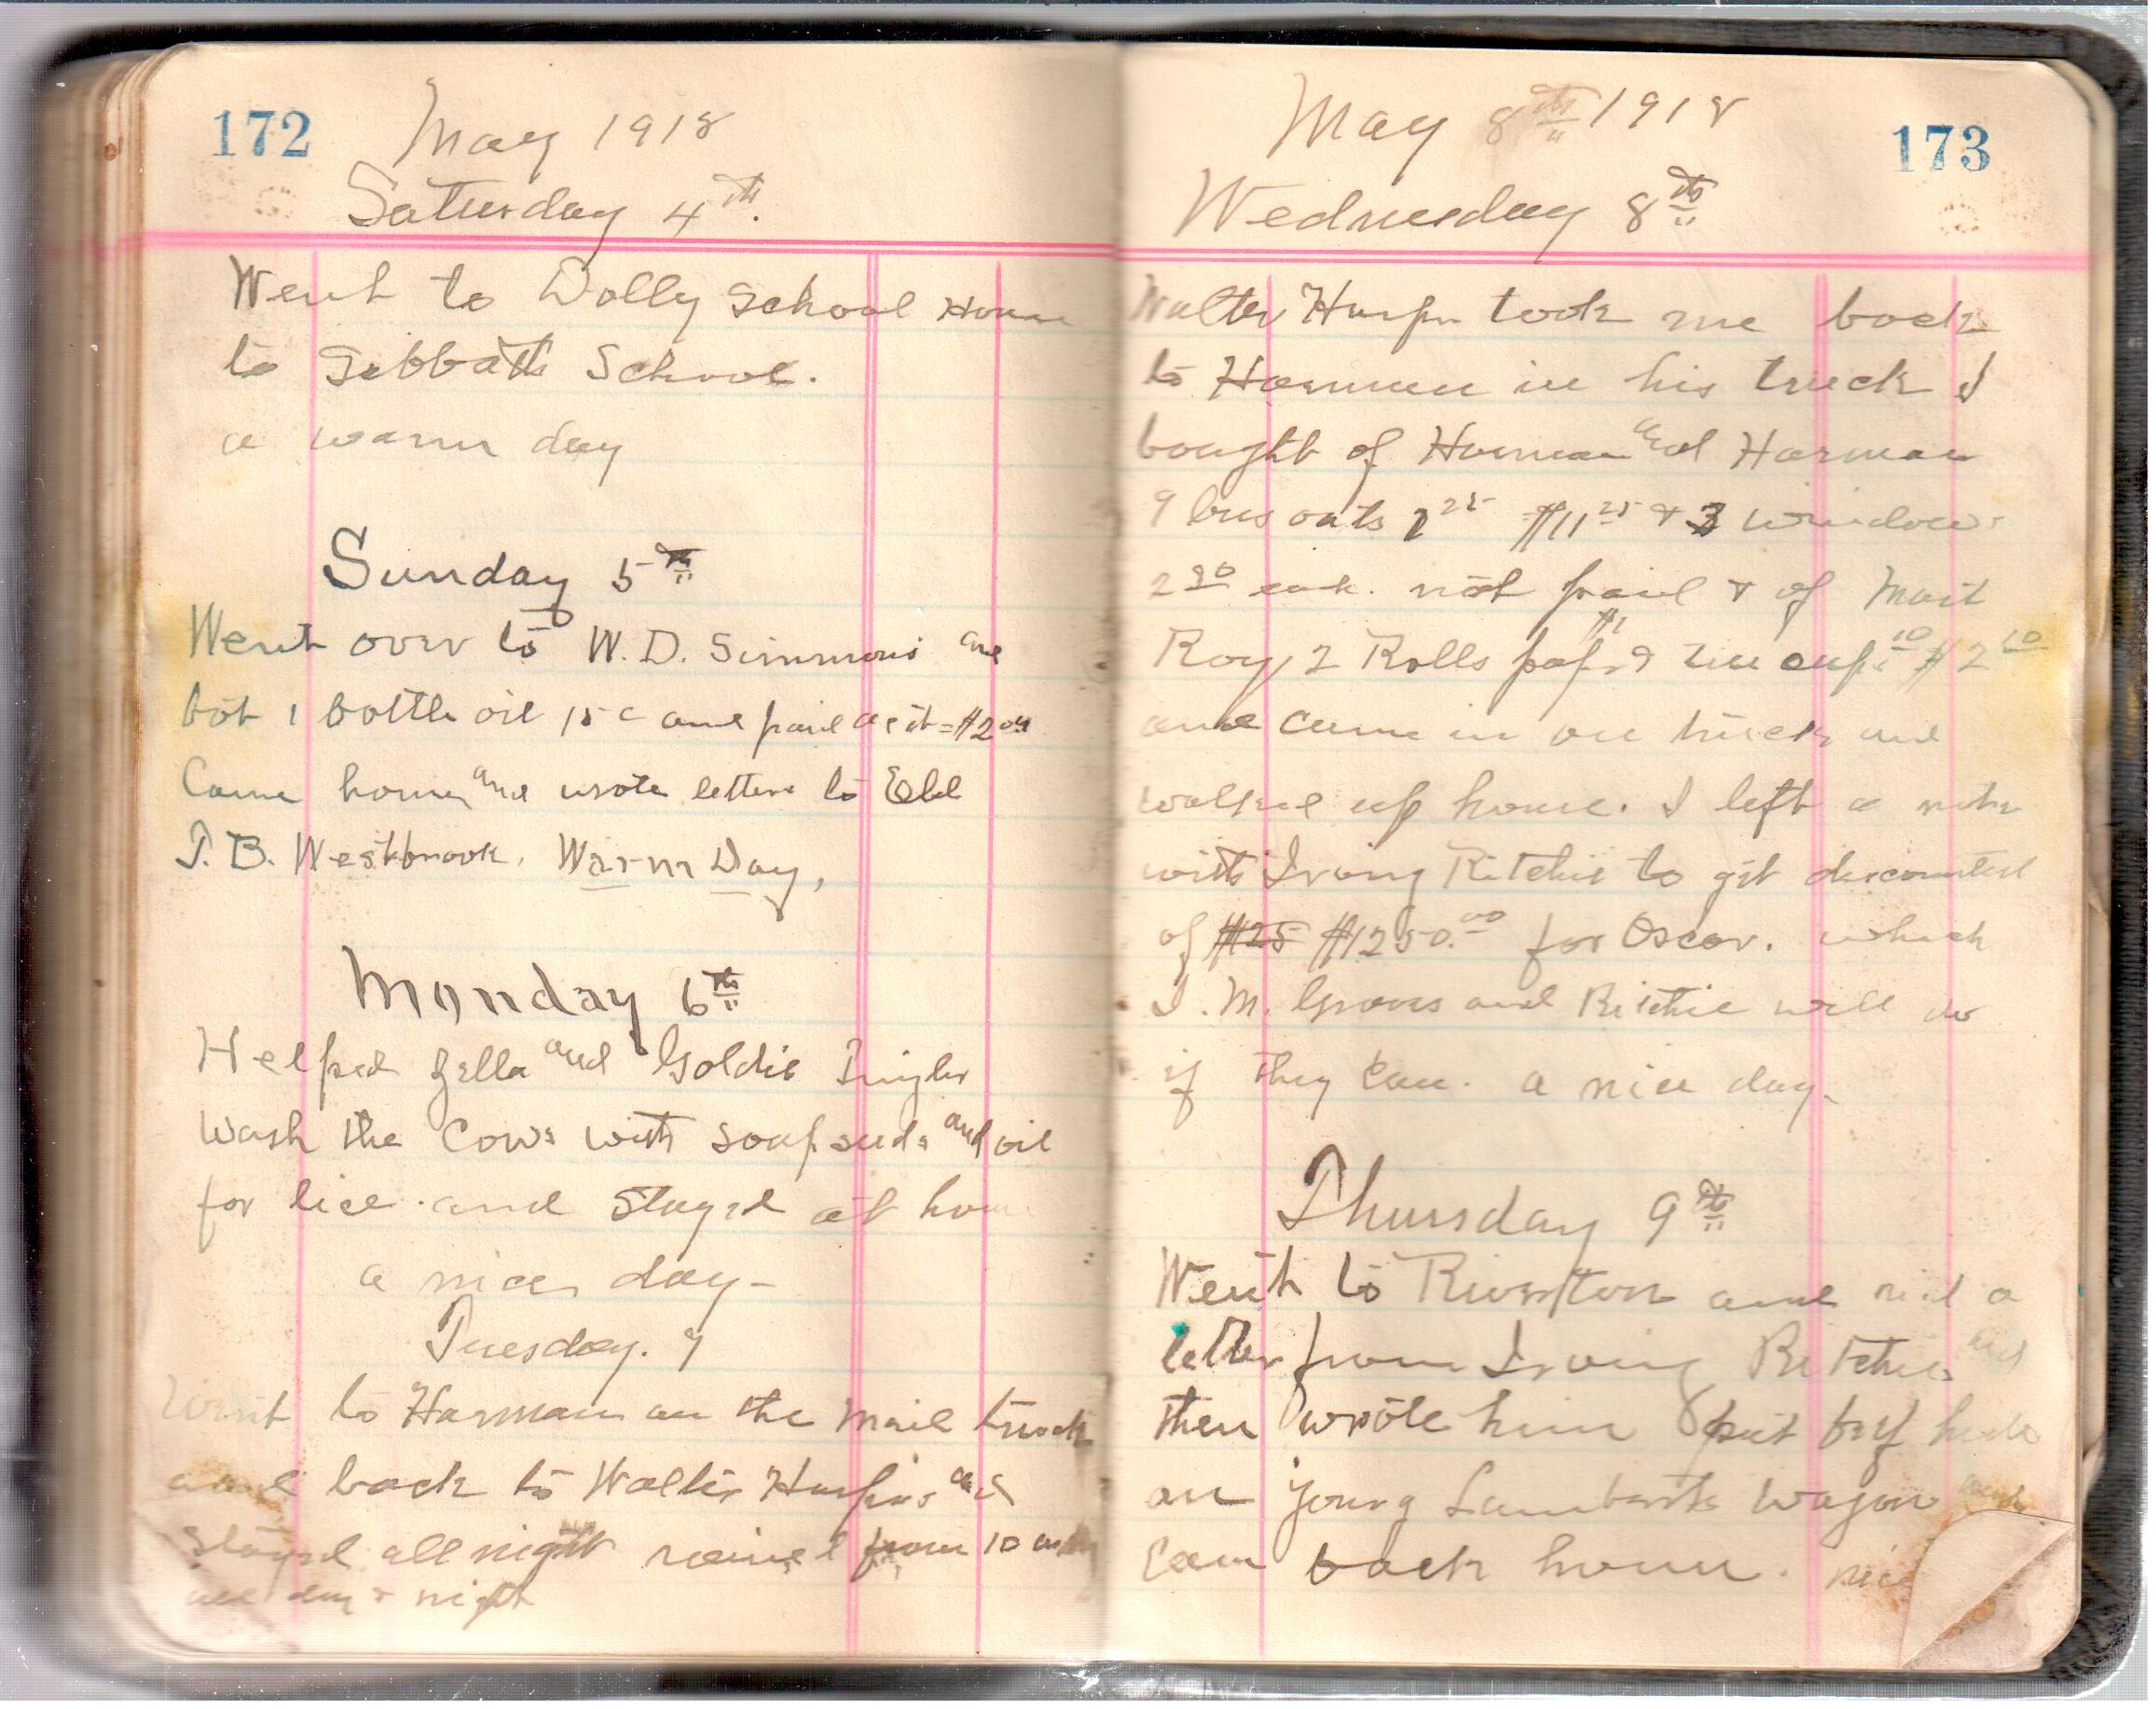 172
May 1918
Saturday 4th.
Went to Dolly School House
to Sabbath School.
a warm day
Sunday 5th
Went over to W.D. Simmons and
bot 1 bottle oil 15 c and paid acct = $2 04
Came home and wrote letters to Eld
T. B. Westbrook. Warm Day,
Monday 6th
Helped Zella and Goldie
Wash the Cows with soap suds and oil
for lice and Stayed at home
a nice day -
Tuesday. 7
Went to Harman on the mail truck
and back to Walter Harpers and
Stayed all night rained from 10 on
all day & night
173
May 8th 1918
Wednesday 8th
Walter Harper took me back
to Harman in his truck I
bought of Harman and Harman
9 bus oats 1 25 $11 25 & 3 windows
2 30 each. not paid & of Mart
Roy 2 Rolls paper $1 & 10 $2 10
and came in on truck and
walked up home. I left a note
with Irving Ritchie to get discounted
of $25 $1250.00 for Oscar. which
I. M. Groves and Ritchie will do
if they Can. a nice day.
Thursday 9th
Went to Riverton and rec'd a
letter from Irving Ritchie and
then wrote him put beef hide
on young Lamberts Wagon and
Came back home. nice